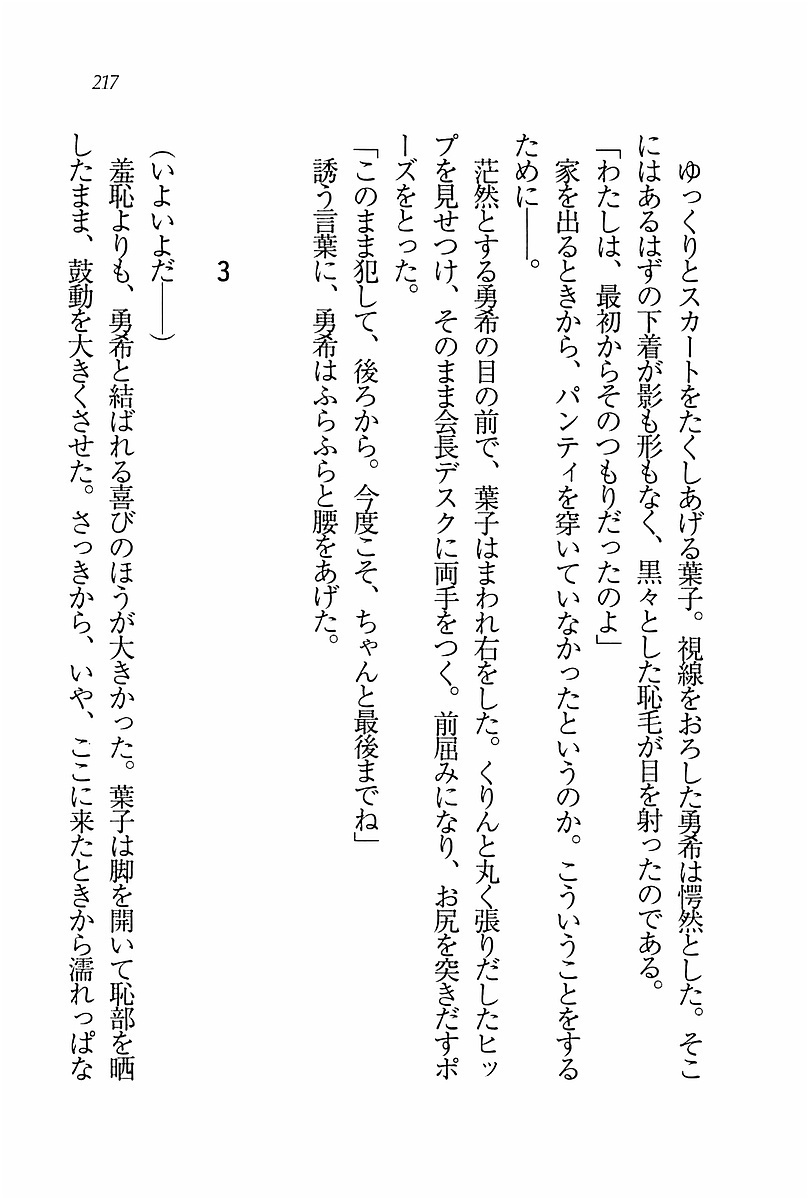 217
ゆっくりとスカートをたくしあげる葉子。視線をおろした勇希は愕然とした。そこ
にはあるはずの下着が影も形もなく、黒々とした恥毛が目を射ったのである。
「わたしは、最初からそのつもりだったのよ」
家を出るときから、パンティを穿いていなかったというのか。こういうことをする
ために――。
茫然とする勇希の目の前で、葉子はまわれ右をした。くりんと丸く張りだしたヒッ
プを見せつけ、そのまま会長デスクに両手をつく。前屈みになり、お尻を突きだすポ
ーズをとった。
「このまま犯して、後ろから。今度こそ、ちゃんと最後までね」
誘う言葉に、勇希はふらふらと腰をあげた。
3
（いよいよだ――）
羞恥よりも、勇希と結ばれる喜びのほうが大きかった。葉子は脚を開いて恥部を晒
したまま、鼓動を大きくさせた。さっきから、いや、ここに来たときから濡れっぱな